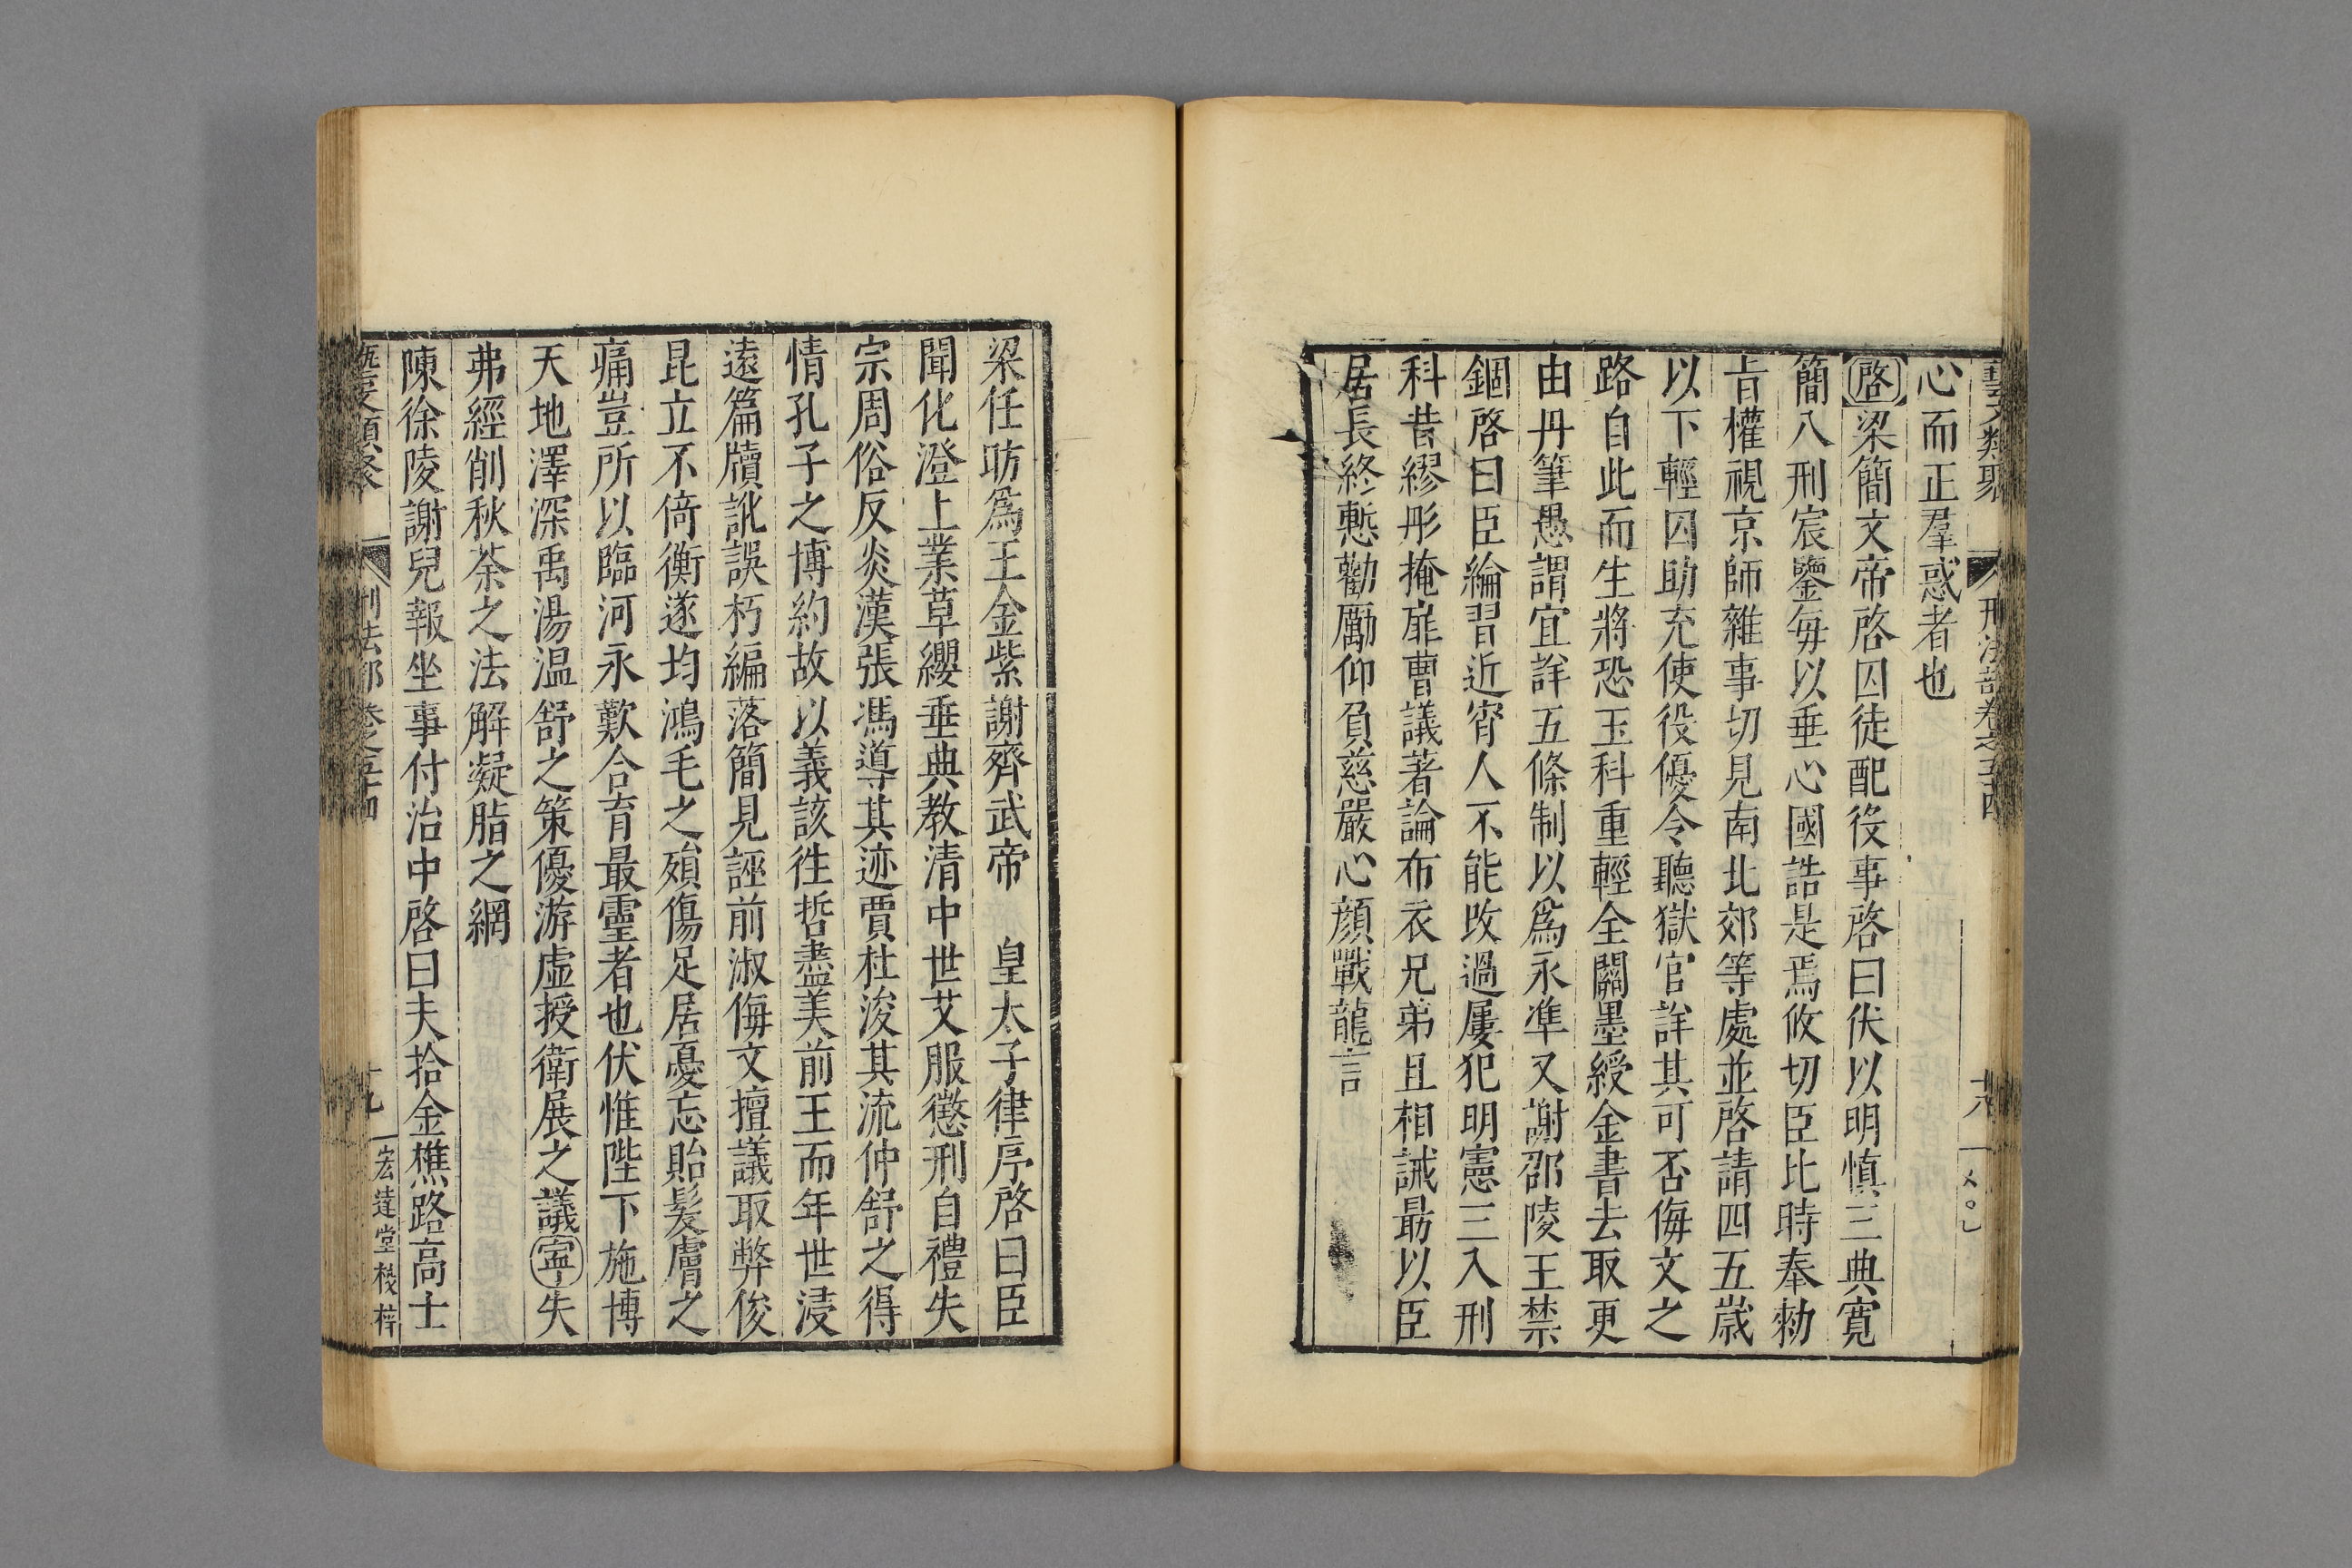 藝文類聚 刑法部卷之五十四 十八
心而正羣惑者也
啓梁簡文帝啓囚徒配役事啓曰伏以明慎三典寛
簡八刑宸鑒每以垂心國誥是焉攸切臣比時奉勑
旨權視京師雜事切見南北郊等處並啓請四五歲
以下輕囚助充使役優令聽獄官詳其可否侮文之
路自此而生將恐玉科重輕全關墨綬金書去取更
由丹筆愚謂宜詳五條制以爲永準又謝邵陵王禁
錮啓曰臣綸習近宵人不能改過屢犯明憲三入刑
科昔繆彤掩扉曹議著論布衣兄弟且相誡最以臣
居長終慙勸勵仰負慈嚴心顔戰龍言
梁任昉爲王金紫謝齊武帝 皇太子律序啓曰臣
聞化澄上業草纓垂典教清中世艾服懲刑自禮失
宗周俗反炎漢張馮導其迹賈杜浚其流仲舒之得
情孔子之博約故以義該徃哲盡美前王而年世浸
遠篇牘訛誤朽編落簡見誣前淑侮文擅議取弊俊
昆立不倚衡遂均鴻毛之殞傷足居憂忘貽髮膚之
痛豈所以臨河永歎合育最靈者也伏惟陛下施博
天地澤深禹湯温舒之策優游虚授衛展之議寧失
弗經削秋荼之法解凝脂之網
陳徐陵謝兒報坐事付治中啓曰夫拾金樵路高士
藝文類聚 刑法部 卷之五十四 十九 宏達堂校梓